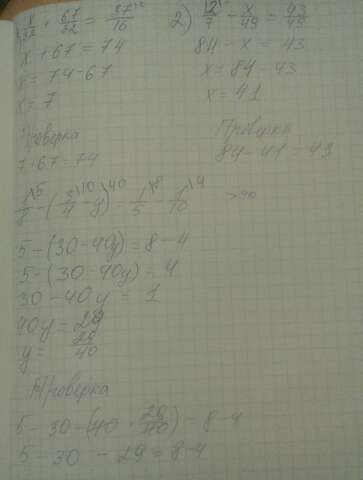 x/32 + 67/32 = 37/16
x + 67 = 74
x = 74 - 67
x = 7
Проверка
7 + 67 = 74
2) 12/7 - x/49 = 43/49
84 - x = 43
x = 84 - 43
x = 41
Проверка
84 - 41 = 43
1/8 \5 - (3/4 \10 - y) \40 = 1/5 \8 - 1/10 \4
5 - (30 - 40y) = 8 - 4
5 - (30 - 40y) = 4
30 - 40y = 1
40y = 29
y = 29/40
Проверка
5 - 30 - (40 · 29/40) = 8 - 4
5 - 30 - 29 = 8 - 4